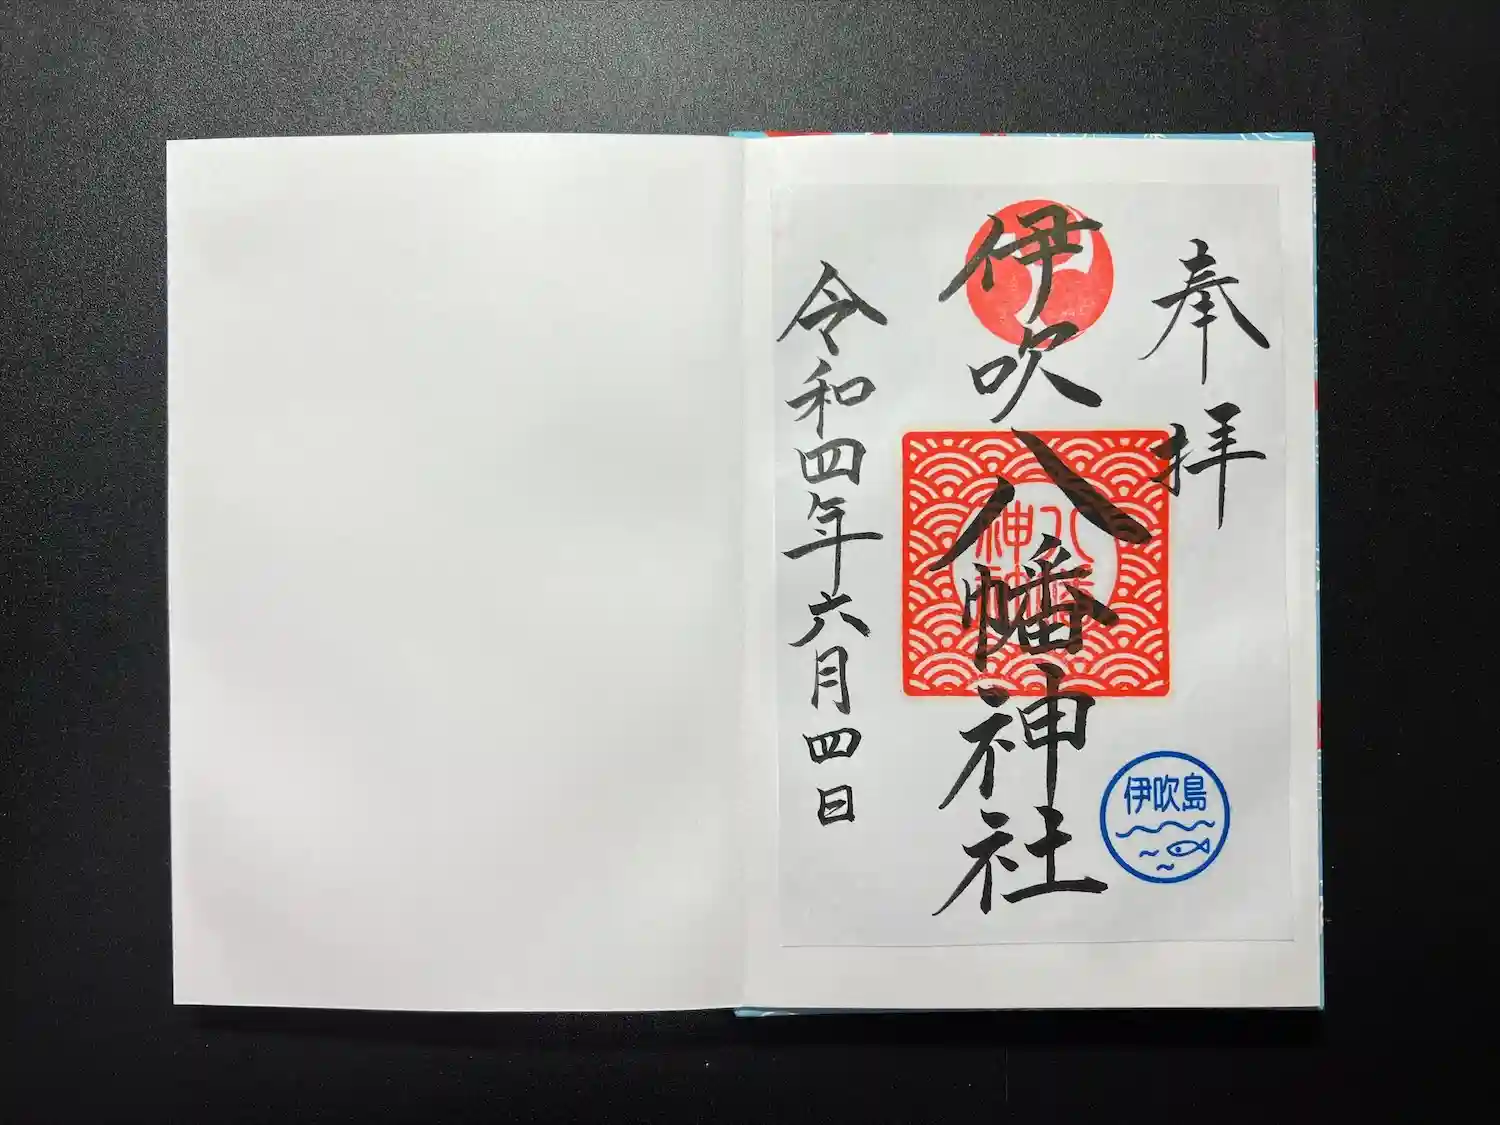 奉拝
伊吹八幡神社
八幡
神社
令和四年六月四日
伊吹島